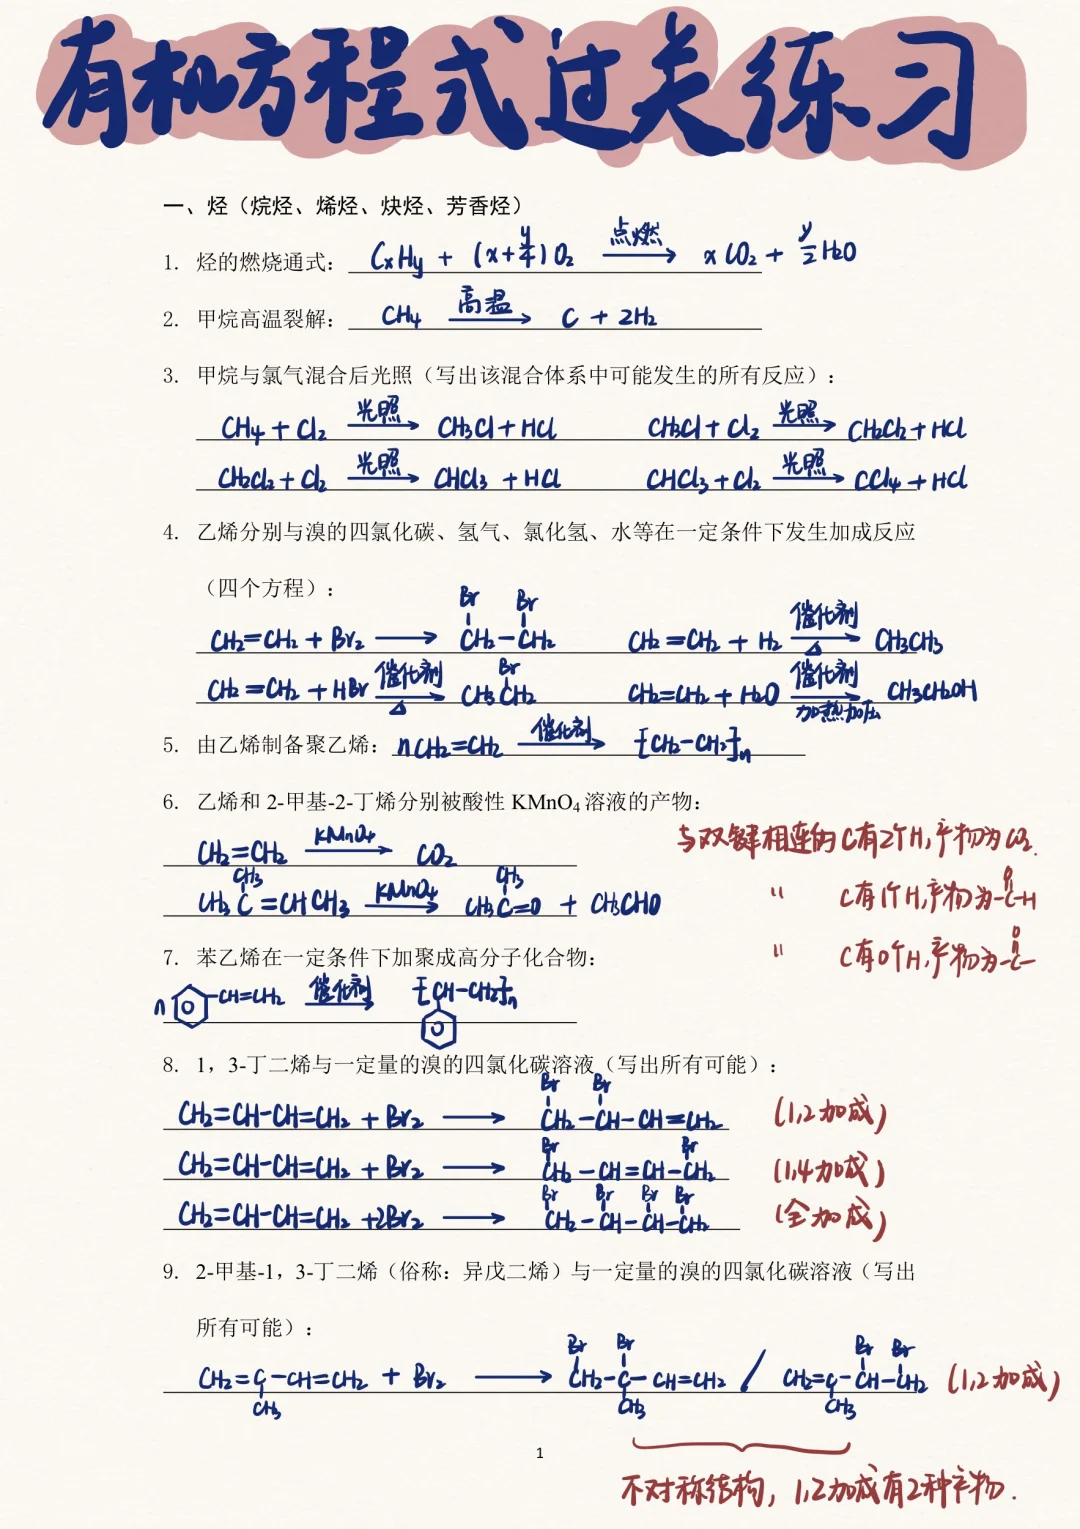 有机方程式过关练习
一、烃（烷烃、烯烃、炔烃、芳香烃）
1. 烃的燃烧通式： CxHy + (x+y/4)O2 —点燃→ xCO2 + y/2 H2O
2. 甲烷高温裂解： CH4 —高温→ C + 2H2
3. 甲烷与氯气混合后光照（写出该混合体系中可能发生的所有反应）：
CH4 + Cl2 —光照→ CH3Cl + HCl CH3Cl + Cl2 —光照→ CH2Cl2 + HCl
CH2Cl2 + Cl2 —光照→ CHCl3 + HCl CHCl3 + Cl2 —光照→ CCl4 + HCl
4. 乙烯分别与溴的四氯化碳、氢气、氯化氢、水等在一定条件下发生加成反应
（四个方程）：
Br Br
CH2=CH2 + Br2 → CH2-CH2 CH2=CH2 + H2 —催化剂/△→ CH3CH3
Br
CH2=CH2 + HBr —催化剂/△→ CH3CH2 CH2=CH2 + H2O —催化剂/加热加压→ CH3CH2OH
5. 由乙烯制备聚乙烯： nCH2=CH2 —催化剂→ [CH2-CH2]n
6. 乙烯和 2-甲基-2-丁烯分别被酸性 KMnO4 溶液的产物：
CH2=CH2 —KMnO4→ CO2 与双键相连的C有2个H，产物为CO2.
CH3 CH3
CH3C=CHCH3 —KMnO4→ CH3C=O + CH3CHO " C有1个H，产物为-C(=O)-H
" C有0个H，产物为-C(=O)-
7. 苯乙烯在一定条件下加聚成高分子化合物：
n -CH=CH2 —催化剂→ [CH-CH2]n
8. 1，3-丁二烯与一定量的溴的四氯化碳溶液（写出所有可能）：
Br Br
CH2=CH-CH=CH2 + Br2 → CH2-CH-CH=CH2 (1,2加成)
Br Br
CH2=CH-CH=CH2 + Br2 → CH2-CH=CH-CH2 (1,4加成)
Br Br Br Br
CH2=CH-CH=CH2 + 2Br2 → CH2-CH-CH-CH2 (全加成)
9. 2-甲基-1，3-丁二烯（俗称：异戊二烯）与一定量的溴的四氯化碳溶液（写出
所有可能）：
Br Br Br Br
CH2=C-CH=CH2 + Br2 → CH2-C-CH=CH2 / CH2=C-CH-CH2 (1,2加成)
CH3 CH3 CH3
1
不对称结构，1,2加成有2种产物.